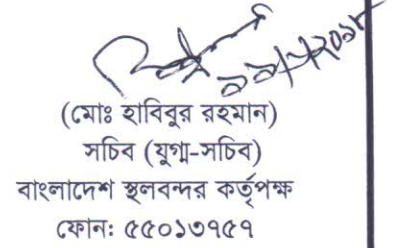 (মোঃ হাবিবুর রহমান)
সচিব (যুগ্ম-সচিব)
বাংলাদেশ স্থলবন্দর কর্তৃপক্ষ
ফোন: ৫৫০১৩৭৫৭